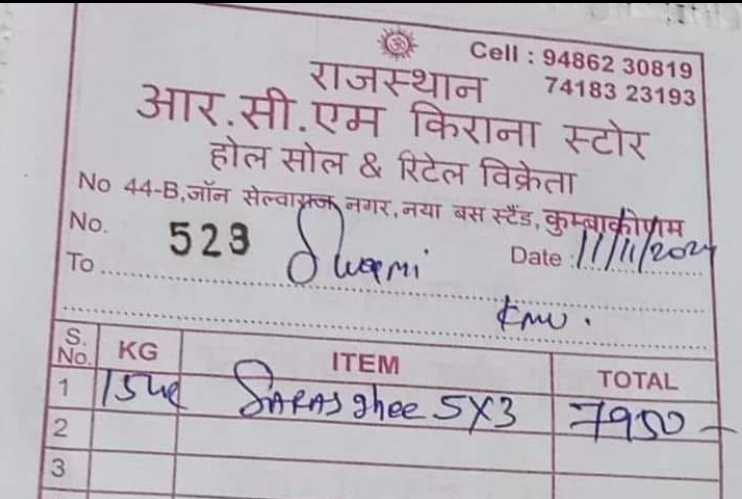 ॐ
Cell : 94862 30819
74183 23193
राजस्थान
आर.सी.एम किराना स्टोर
होल सोल & रिटेल विक्रेता
No 44-B,जॉन सेल्वाराज नगर,नया बस स्टैंड,कुम्बाकोणम
No. 523 Swami Date : 11/11/2024
To
KMU.
S. No. KG ITEM TOTAL
1 15kg SARAS ghee 5X3 7950-
2
3